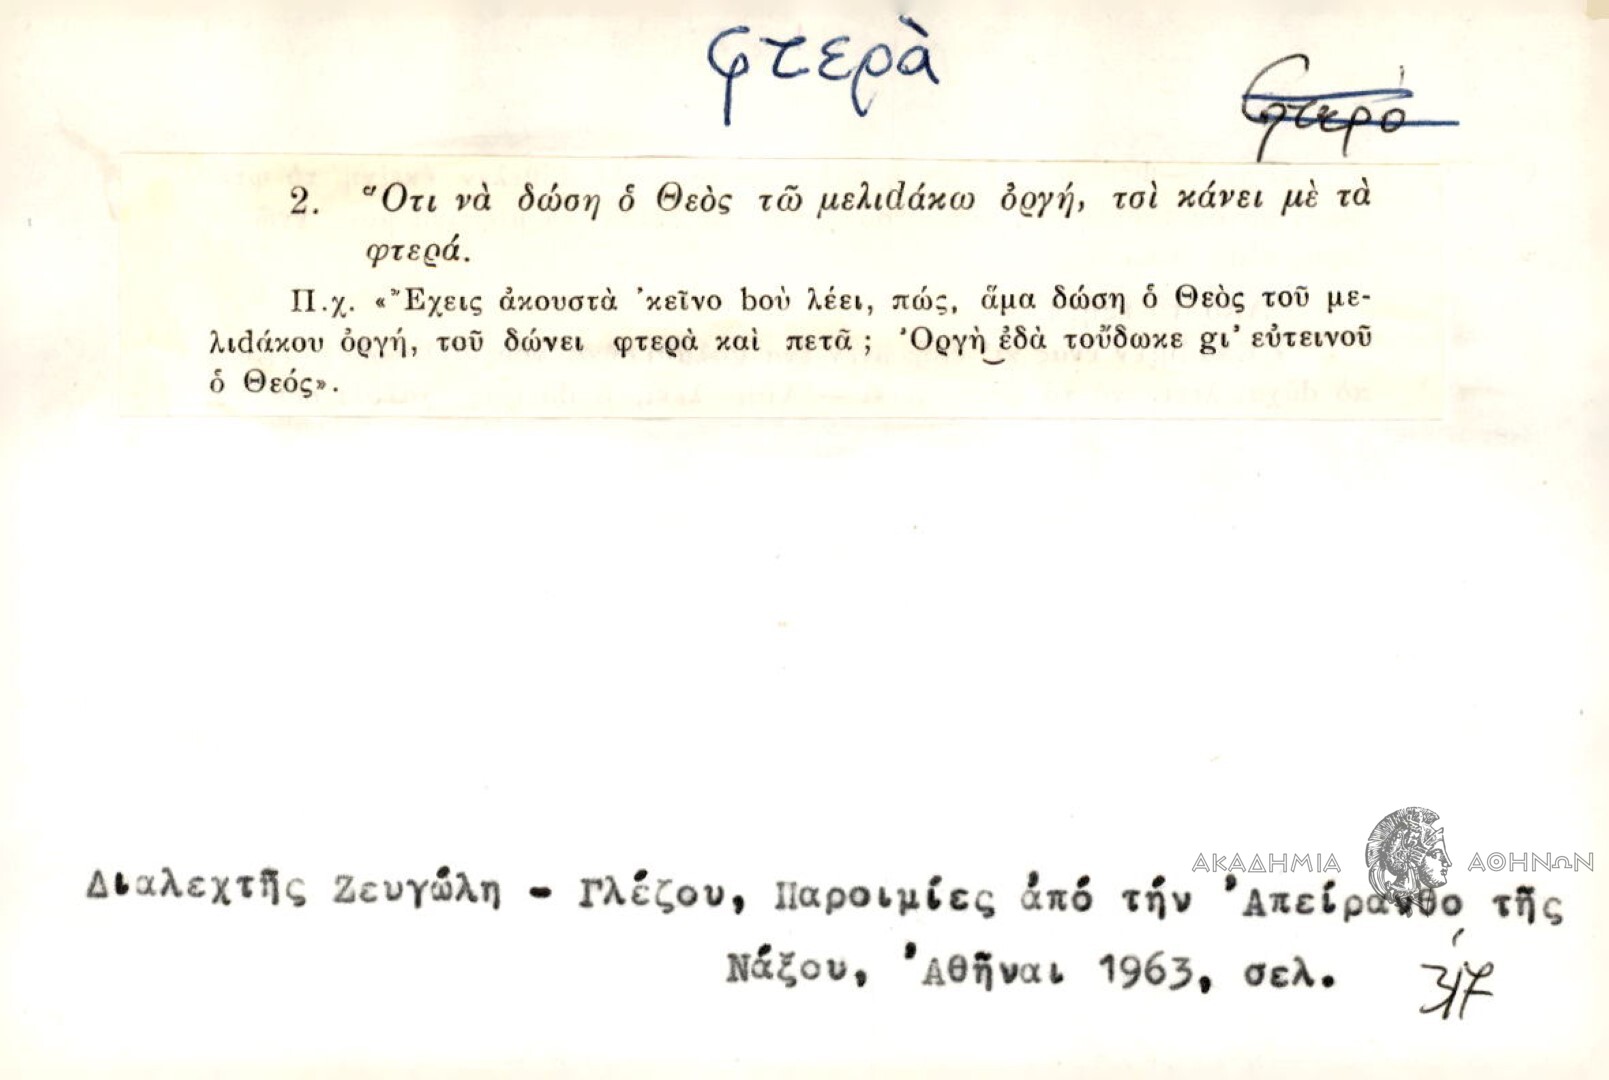 φτερὰ
φτερό
2. Ὅτι νὰ δώσῃ ὁ Θεὸς τῶ μελιdάκω ὀργή, τσὶ κάνει μὲ τὰ
φτερά.
Π.χ. «Ἔχεις ἀκουστὰ ’κεῖνο bοὺ λέει, πώς, ἅμα δώσῃ ὁ Θεὸς τοῦ με-
λιdάκου ὀργή, τοῦ δώνει φτερὰ καὶ πετᾶ; Ὀργὴ ἐδὰ τοὔδωκε gι’ εὐτεινοῦ
ὁ Θεός».
ΑΚΑΔΗΜΙΑ ΑΘΗΝΩΝ
Διαλεχτῆς Ζευγώλη - Γλέζου, Παροιμίες ἀπό τήν Ἀπείρανθο τῆς
Νάξου, Ἀθῆναι 1963, σελ. 317